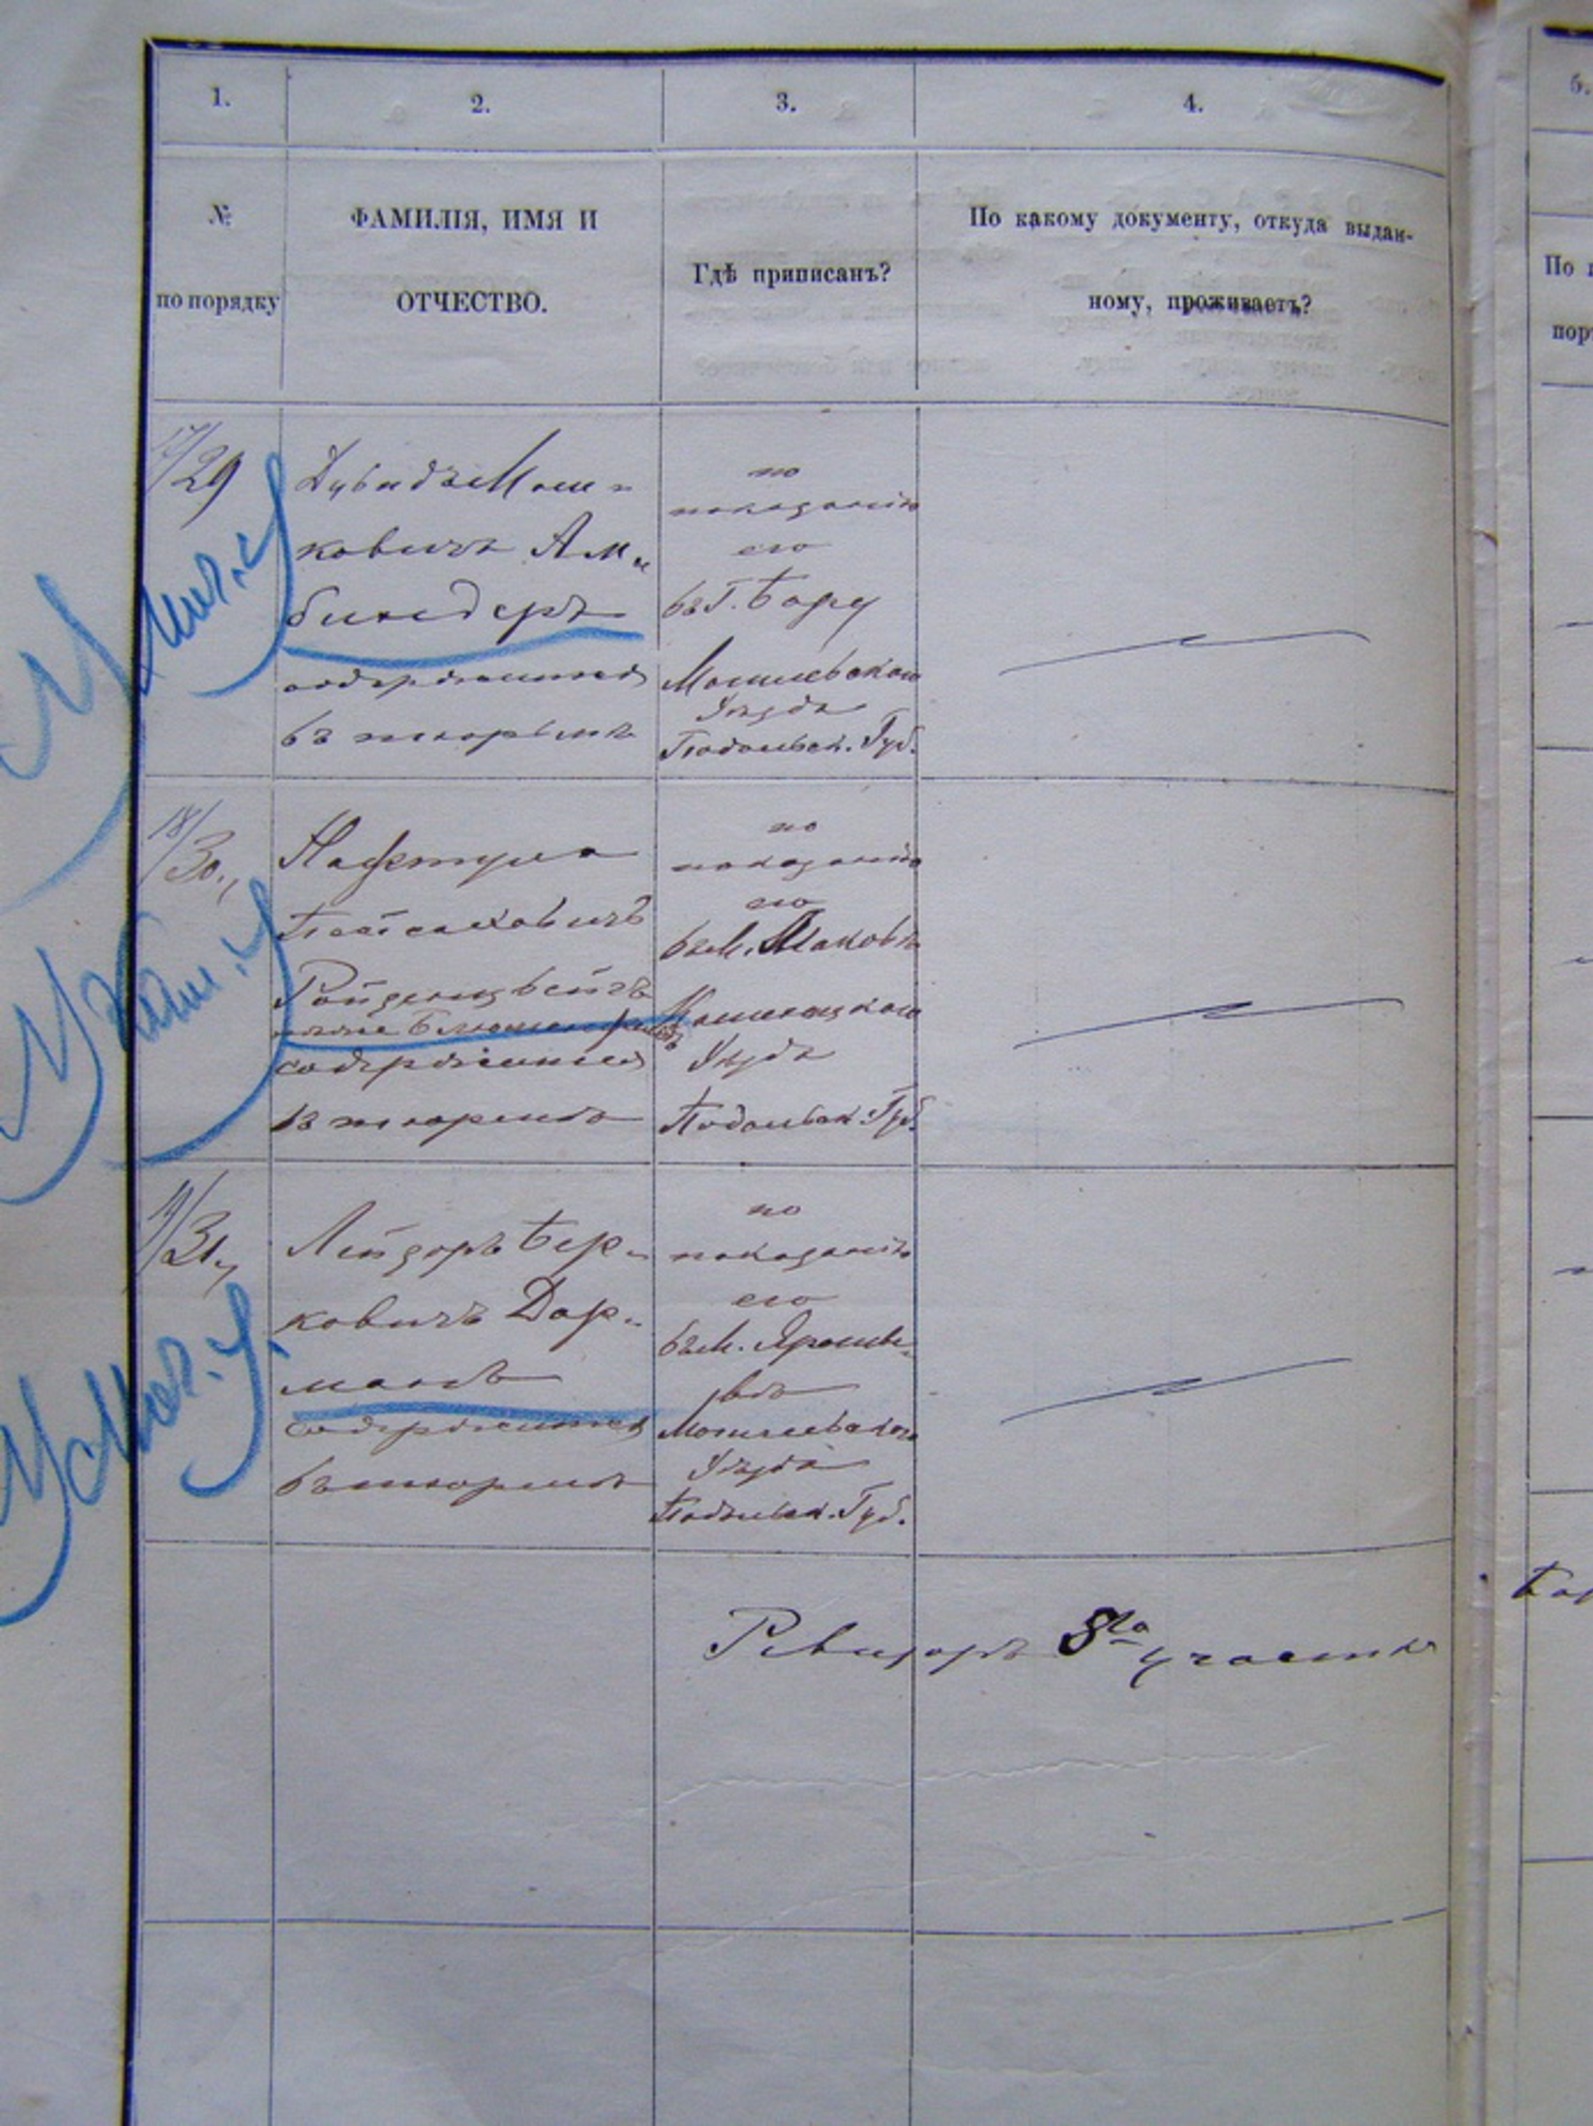 1.
2.
3.
4.
№
по порядку
ФАМИЛІЯ, ИМЯ И
ОТЧЕСТВО.
Гдѣ приписанъ?
По какому документу, откуда выдан-
ному, проживаетъ?
17/29
Дувидъ Мош-
ковичъ Ам-
биндеръ
содержится
въ тюрьмѣ
по
показанію
его
въ Г. Бару
Могилевскаго
Уѣзда
Подольск. Губ.
18/30.
Нафтула
Пейсаховичъ
Ройзенцвейгъ
содержится
въ тюрьмѣ
по
показанію
его
въ М.
Каменецкаго
Уѣзда
Подольск. Губ.
19/31
Лейзоръ Бер-
ковичъ Дор-
манъ
содержится
въ тюрьмѣ
по
показанію
его
въ М. Ярыше-
вѣ
Могилевскаго
Уѣзда
Подольск. Губ.
Ревизоръ 8го участка
5.
По
пор